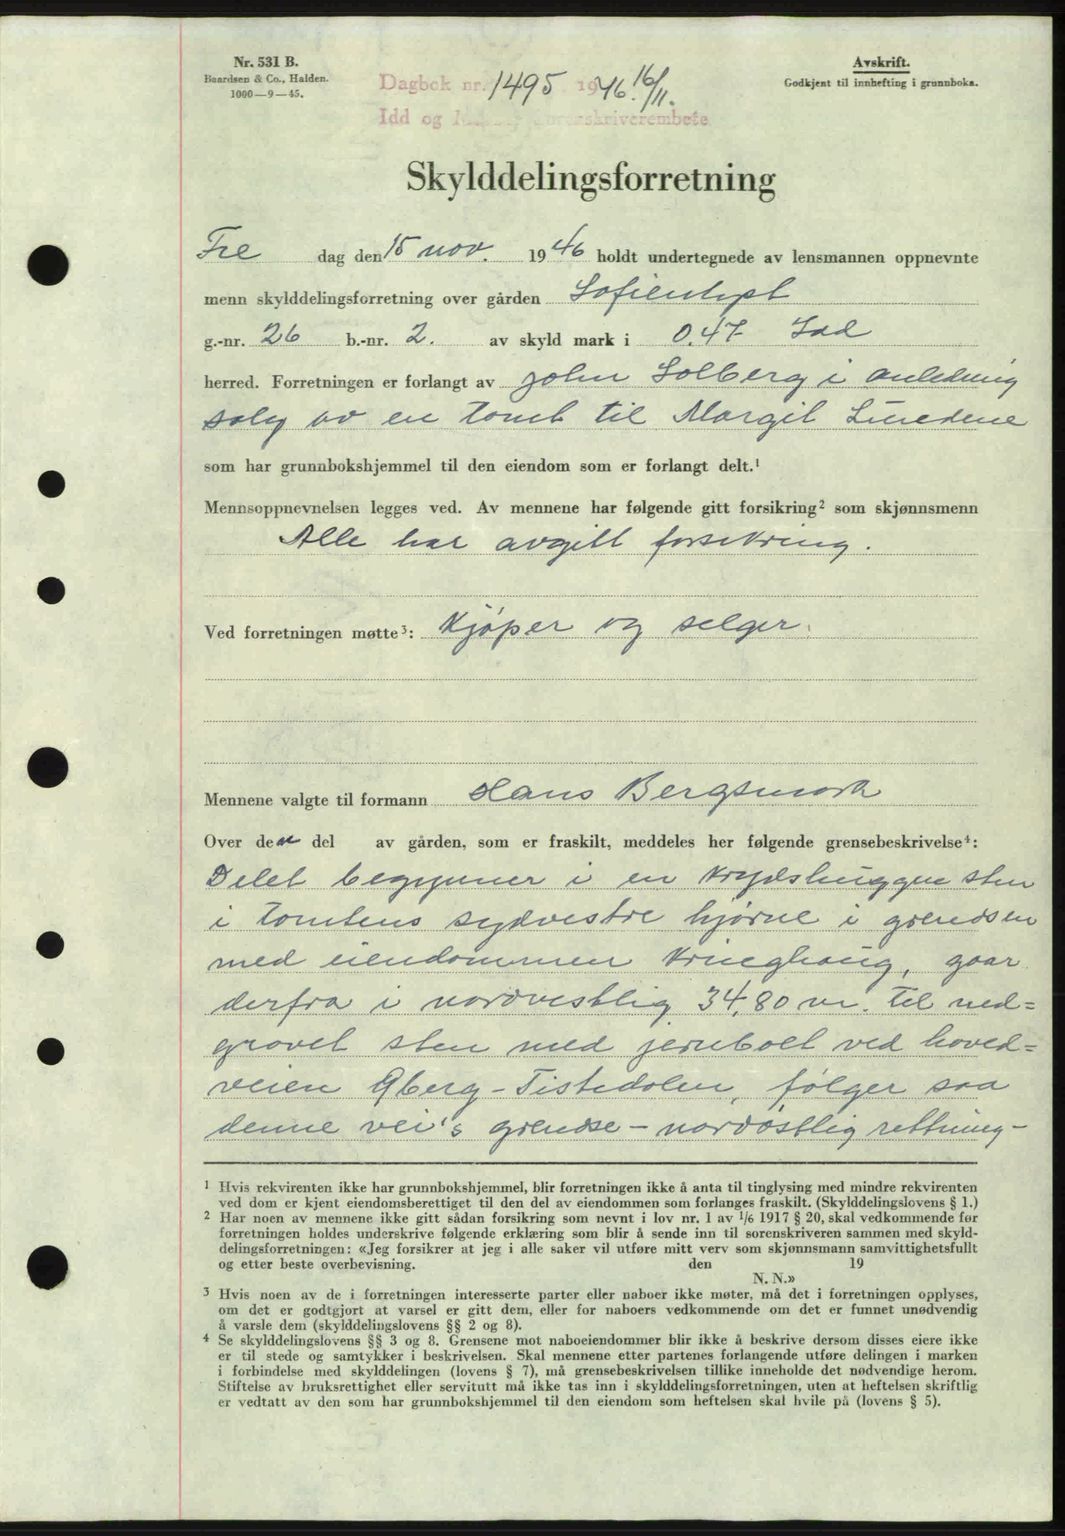 Nr. 531 B.
Baardsen & Co., Halden.
1000—9—45.
Dagbok nr. 1495 1946. 16/11.
Idd og sorenskriverembete
Avskrift.
Godkjent til innhefting i grunnboka.
Skylddelingsforretning
Fre dag den 15 nov. 1946 holdt undertegnede av lensmannen oppnevnte
menn skylddelingsforretning over gården Sofienlyst
g.-nr. 26 b.-nr. 2. av skyld mark i 0.47 Idd
herred. Forretningen er forlangt av John Solberg i anledning
salg av en tomt til Margit Lundene
som har grunnbokshjemmel til den eiendom som er forlangt delt.¹
Mennsoppnevnelsen legges ved. Av mennene har følgende gitt forsikring² som skjønnsmenn
Alle har avgitt forsikring.
Ved forretningen møtte³: Kjøper og selger.
Mennene valgte til formann Hans Bergsmark
Over den del av gården, som er fraskilt, meddeles her følgende grensebeskrivelse⁴:
Delet begynner i en krydshuggen sten
i tomtens sydvestre hjørne i grendsen
med eiendommen , gaar
derfra i nordvestlig 34,80 m. til ned=
gravet sten med jernbolt ved hoved=
veien Øberg - Tistedalen, følger saa
denne vei's grendse - nordøstlig rettning -
¹ Hvis rekvirenten ikke har grunnbokshjemmel, blir forretningen ikke å anta til tinglysing med mindre rekvirenten
ved dom er kjent eiendomsberettiget til den del av eiendommen som forlanges fraskilt. (Skylddelingslovens § 1.)
² Har noen av mennene ikke gitt sådan forsikring som nevnt i lov nr. 1 av 1/6 1917 § 20, skal vedkommende før
forretningen holdes underskrive følgende erklæring som blir å sende inn til sorenskriveren sammen med skyld-
delingsforretningen: «Jeg forsikrer at jeg i alle saker vil utføre mitt verv som skjønnsmann samvittighetsfullt
og etter beste overbevisning. den 19
N. N.»
³ Hvis noen av de i forretningen interesserte parter eller naboer ikke møter, må det i forretningen opplyses,
om det er godtgjort at varsel er gitt dem, eller for naboers vedkommende om det er funnet unødvendig
å varsle dem (skylddelingslovens §§ 2 og 8).
⁴ Se skylddelingslovens §§ 3 og 8. Grensene mot naboeiendommer blir ikke å beskrive dersom disses eiere ikke
er til stede og samtykker i beskrivelsen. Skal mennene etter partenes forlangende utføre delingen i marken
i forbindelse med skylddelingen (lovens § 7), må grensebeskrivelsen tillike inneholde det nødvendige herom.
Stiftelse av bruksrettighet eller servitutt må ikke tas inn i skylddelingsforretningen, uten at heftelsen skriftlig
er vedtatt av den som har grunnbokshjemmel til den eiendom som heftelsen skal hvile på (lovens § 5).